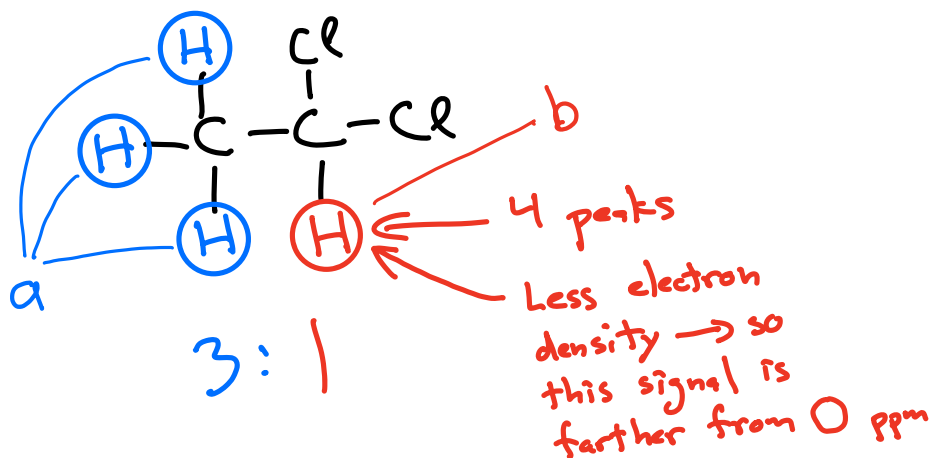 H Cl
H C C Cl b
H H 4 peaks
a Less electron
3 : 1 density → so
this signal is
farther from 0 ppm